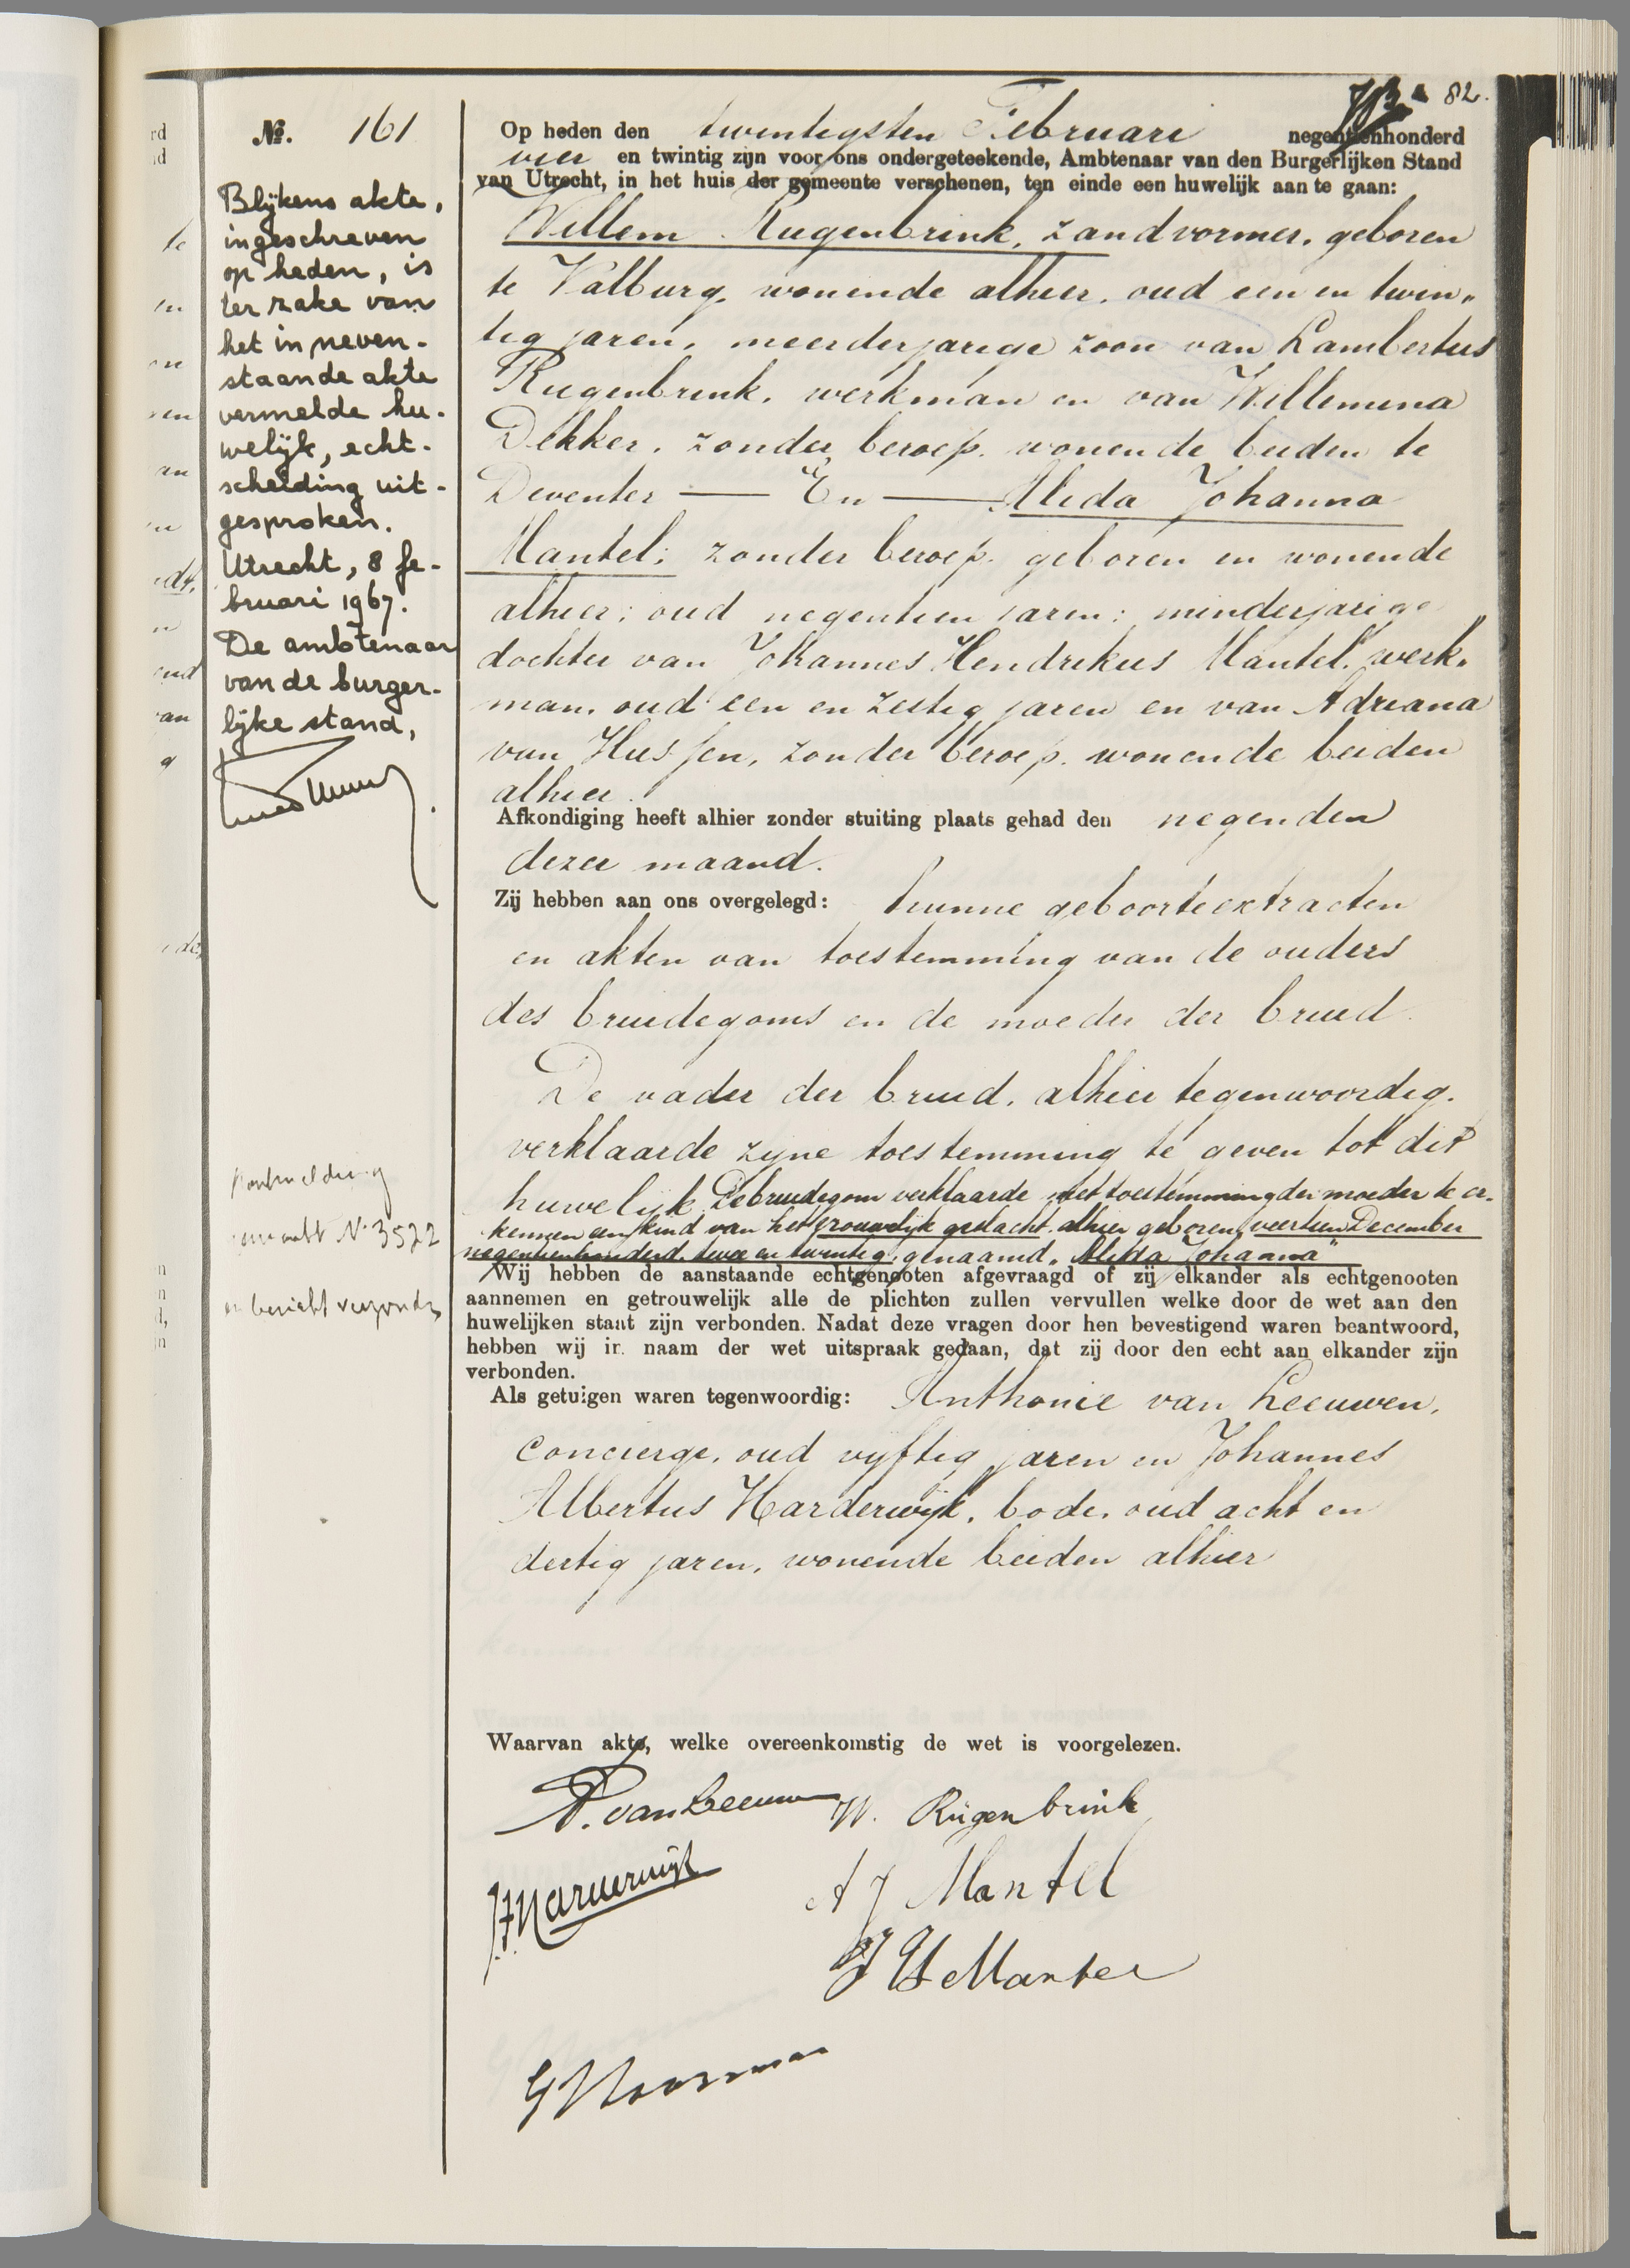 82.
No. 161
Op heden den twintigsten Februari negentienhonderd
vier en twintig zijn voor ons ondergeteekende, Ambtenaar van den Burgerlijken Stand
van Utrecht, in het huis der gemeente verschenen, ten einde een huwelijk aan te gaan:
Willem Rugenbrink, zandvormer, geboren
te Valburg, wonende alhier, oud een en twin„
tig jaren, meerderjarige zoon van Lambertus
Rugenbrink, werkman en van Willemina
Dekker, zonder beroep, wonende beiden te
Deventer — En — Alida Johanna
Mantel; zonder beroep, geboren en wonende
alhier; oud negentien jaren; minderjarige
dochter van Johannes Hendrikus Mantel, werk„
man, oud een en zestig jaren en van Adriana
van Hussen, zonder beroep, wonende beiden
alhier.
Afkondiging heeft alhier zonder stuiting plaats gehad den negenden
dezer maand.
Zij hebben aan ons overgelegd: hunne geboorteextracten
en akten van toestemming van de ouders
des bruidegoms en de moeder der bruid.
De vader der bruid, alhier tegenwoordig,
verklaarde zijne toestemming te geven tot dit
huwelijk. De bruidegom verklaarde met toestemming der moeder te er-
kennen een kind van het vrouwelijk geslacht alhier geboren, veertien December
negentienhonderd twee en twintig, genaamd „Alida Johanna"
Wij hebben de aanstaande echtgenooten afgevraagd of zij elkander als echtgenooten
aannemen en getrouwelijk alle de plichten zullen vervullen welke door de wet aan den
huwelijken staat zijn verbonden. Nadat deze vragen door hen bevestigend waren beantwoord,
hebben wij in naam der wet uitspraak gedaan, dat zij door den echt aan elkander zijn
verbonden.
Als getuigen waren tegenwoordig: Anthonie van Leeuwen,
concierge, oud vijftig jaren en Johannes
Albertus Harderwijk, bode, oud acht en
dertig jaren, wonende beiden alhier
Waarvan akte, welke overeenkomstig de wet is voorgelezen.
A. van Leeuwen W. Rügenbrink
J.A. Harderwijk
A J Mantel
J H Mantel
Blijkens akte,
ingeschreven
op heden, is
ter zake van
het in neven-
staande akte
vermelde hu-
welijk, echt-
scheiding uit-
gesproken.
Utrecht, 8 fe-
bruari 1967.
De ambtenaar
van de burger-
lijke stand,
Kantmelding
No 3522
en bericht verzonden